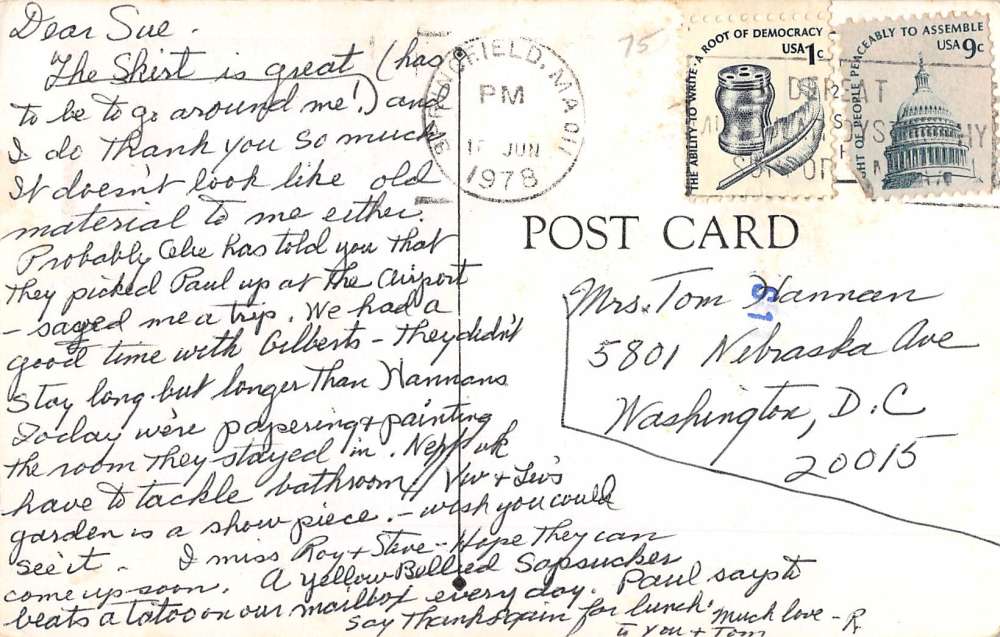 Dear Sue.
The Skirt is great (has
to be to go around me!) and
I do thank you so much
It doesn't look like old
material to me either.
Probably has told you that
they picked Paul up at the airport
- saved me a trip. We had a
good time with Gilberts - They didn't
stay long but longer than Hannans
Today we're papering & painting
the room they stayed in. Next wk
have to tackle bathroom. Viv + Lew's
garden is a show piece. - wish you could
see it. I miss Roy + Steve - Hope they can
come up soon. A Yellow Bellied Sapsucker
beats a tatoo on our mailbox every day. Paul says to
say thanks again for lunch. Much love - R
to you + Tom
SPRINGFIELD, MA 011
PM
JUN
1978
75
THE ABILITY TO WRITE · A ROOT OF DEMOCRACY
USA 1c
RIGHT OF PEOPLE PEACEABLY TO ASSEMBLE
USA 9c
POST CARD
51
Mrs. Tom Hannan
5801 Nebraska Ave
Washington, D.C
20015